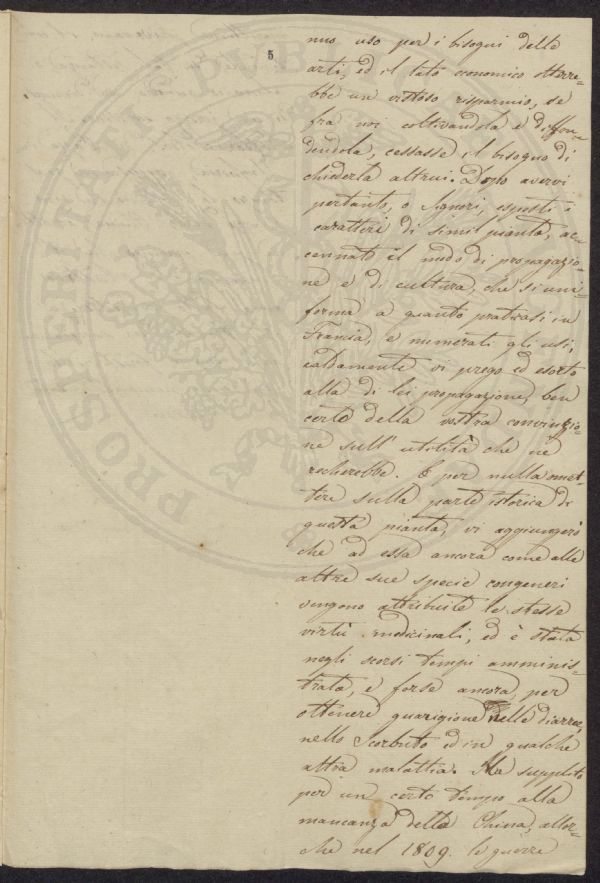 5
nuo uso per i bisogni delle
arti, ed il lato economico otterre-
bbe un vistoso risparmio, se
fra noi coltivandola e diffon-
dendola, cessasse il bisogno di
chiederla altrui. Dopo avervi
pertanto, o Signori, esposti i
caratteri di simil pianta, ac-
cennato il modo di propagazio-
ne e di cultura, che si uni-
forma a quanto praticasi in
Francia, e numerati gli usi,
caldamente vi prego ed esorto
alla di lei propagazione, ben
certo della vostra convinzio-
ne sull' utilità che ne
recherebbe. E per nulla omet-
tere sulla parte istorica di
questa pianta, vi aggiungerò
che ad essa ancora come alle
altre sue specie congeneri
vengono attribuite le stesse
virtù medicinali, ed è stata
negli scorsi tempi amminis-
trata, e forse ancora, per
ottenere guarigione nelle diarree,
nello Scorbuto ed in qualche
altra malattia. Ha supplito
per un certo tempo alla
mancanza della China, allor-
che nel 1809. le guerre
PROSPERITATI PUBL